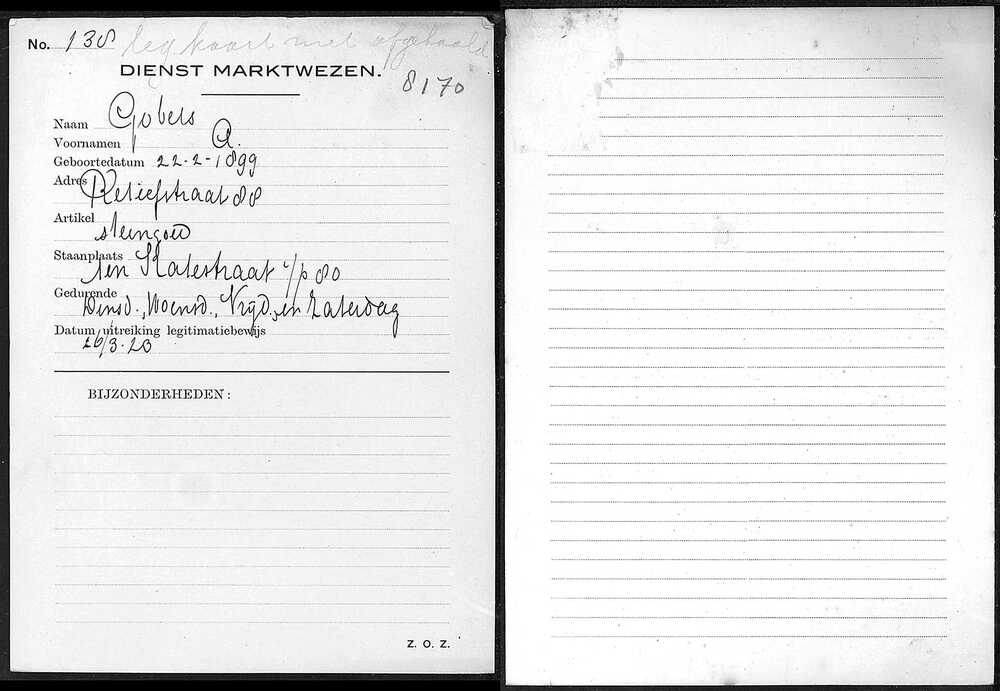 No. 138 leg kaart niet afgehaald
DIENST MARKTWEZEN.
8170
Naam Gobers
Voornamen A.
Geboortedatum 22-2-1899
Adres Retiefstraat 88
Artikel steengoed
Staanplaats ten Katestraat t/p 80
Gedurende Dinsd., Woensd., Vrijd. en Zaterdag
Datum uitreiking legitimatiebewijs
26/3-23
BIJZONDERHEDEN:
Z. O. Z.